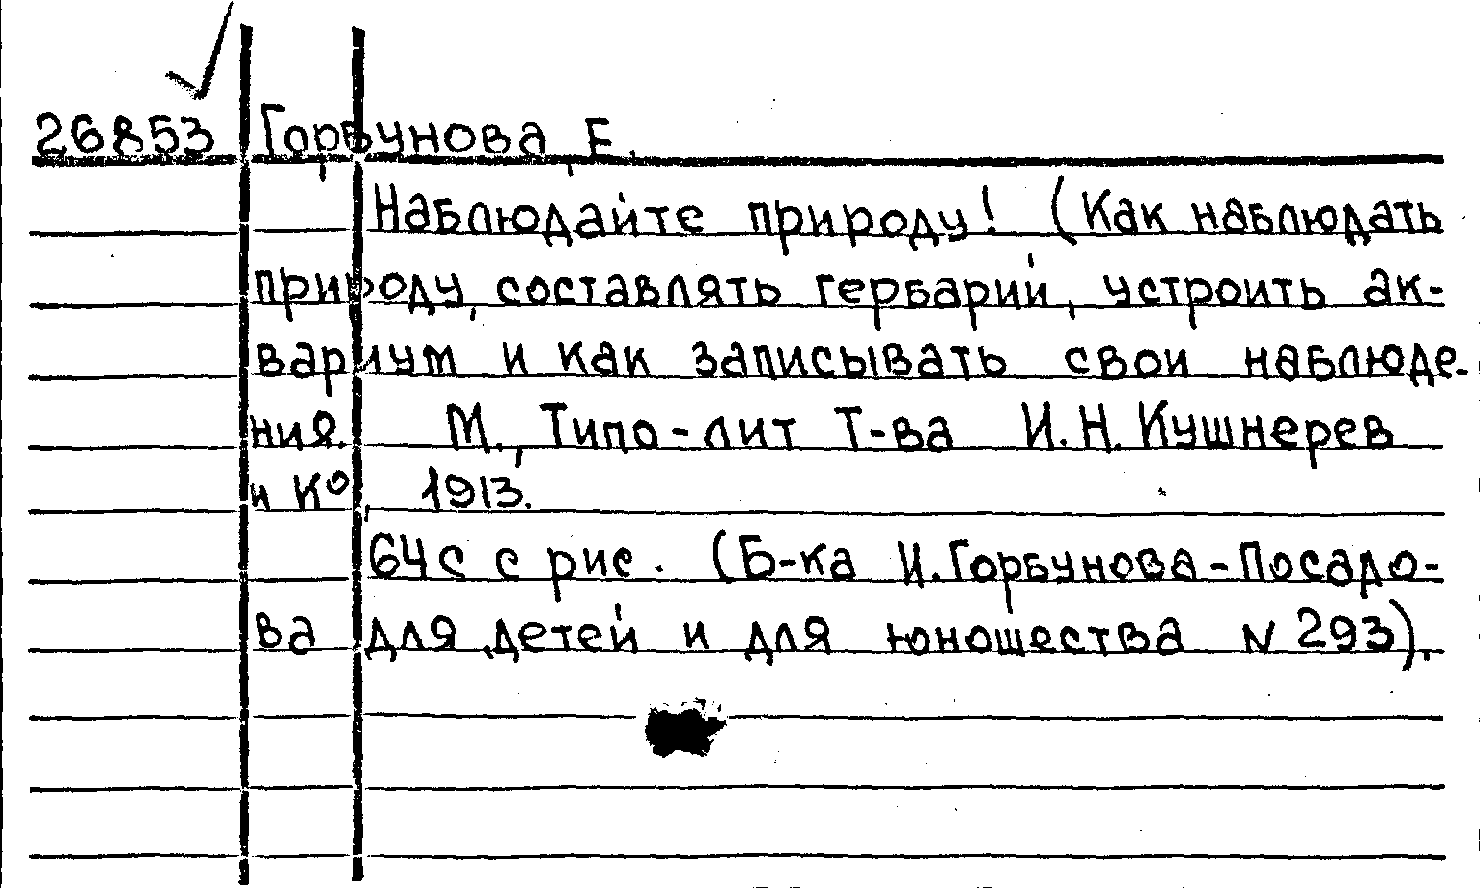 26853 Горбунова, Е.
Наблюдайте природу! (Как наблюдать
природу, составлять гербарий, устроить ак-
вариум и как записывать свои наблюде-
ния. М., Типо-лит Т-ва И.Н.Кушнерев
и К°, 1913.
64с с рис. (Б-ка И.Горбунова-Посадо-
ва для детей и для юношества N 293).